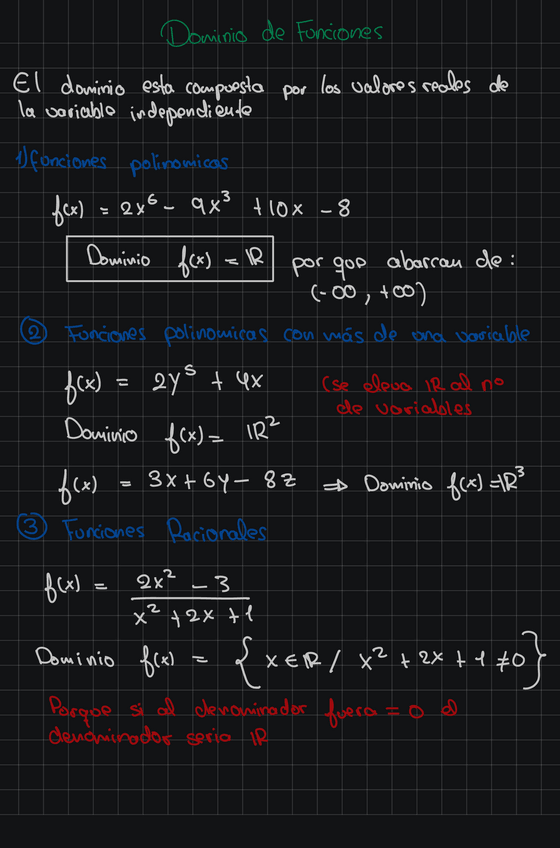 Dominio de Funciones
El dominio esta compuesta por los valores reales de
la variable independiente
1) funciones polinomicas
f(x) = 2x⁶ - 9x³ + 10x - 8
Dominio f(x) = ℝ por que abarcan de :
(-∞, +∞)
② Funciones polinomicas con más de una variable
f(x) = 2y⁵ + 4x (se eleva ℝ al no
de variables
Dominio f(x) = ℝ²
f(x) = 3x + 6y - 8z ⇒ Dominio f(x) = ℝ³
③ Funciones Racionales
f(x) = (2x² - 3) / (x² + 2x + 1)
Dominio f(x) = { x ∈ ℝ / x² + 2x + 1 ≠ 0 }
Porque si al denominador fuera = 0 el
denominador seria ℝ